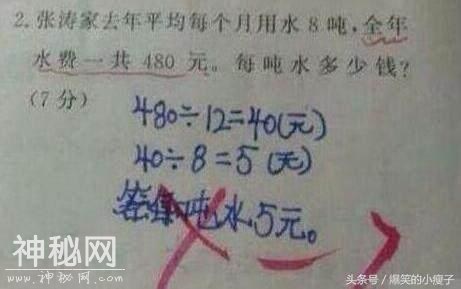 2.张涛家去年平均每个月用水8吨,全年
水费一共480元。每吨水多少钱?
(7分)
480÷12=40(元)
40÷8=5(元)
答:每吨水5元。
神秘网
www.神秘网.com
头条号/爆笑的小瘦子